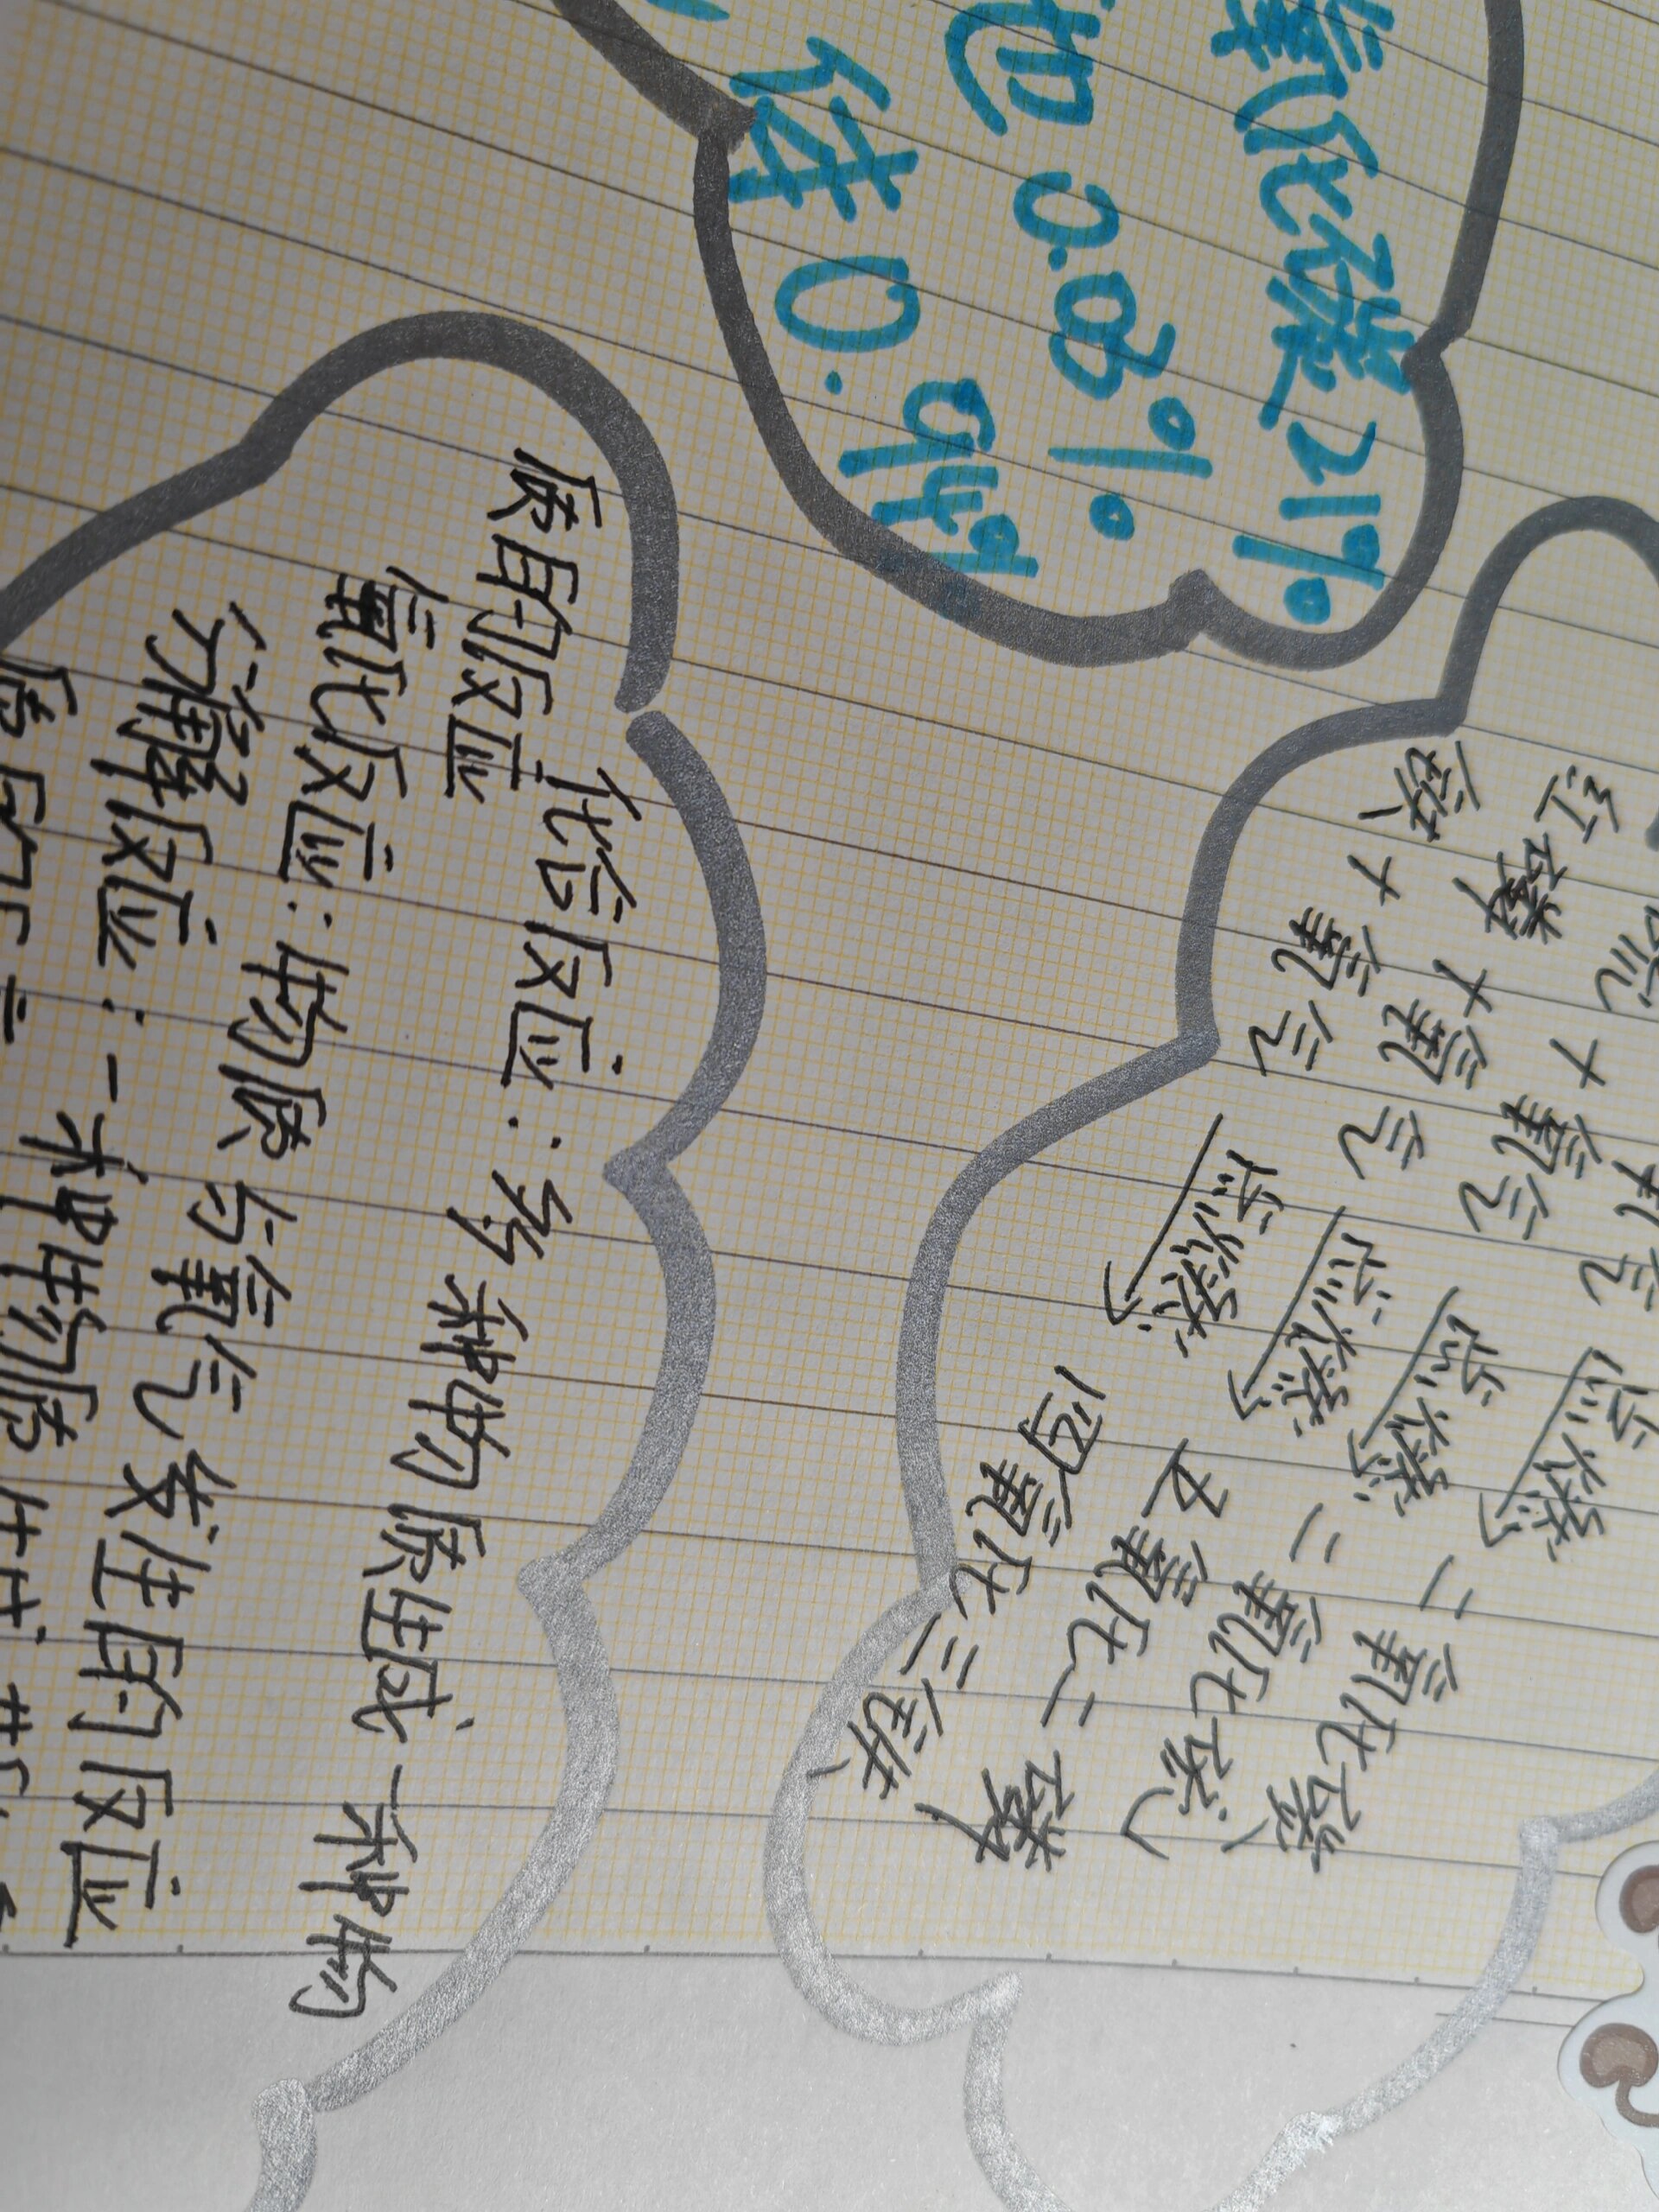 氧化碳21%
他 0.03%
体 0.94%
氧气 点燃 二氧化碳
硫 + 氧气 点燃 二氧化硫
红磷 + 氧气 点燃 五氧化二磷
铁 + 氧气 点燃 四氧化三铁
化合反应:多种物质生成一种物
质的反应
氧化反应:物质与氧气发生的反应
分解反应:一种物质生成